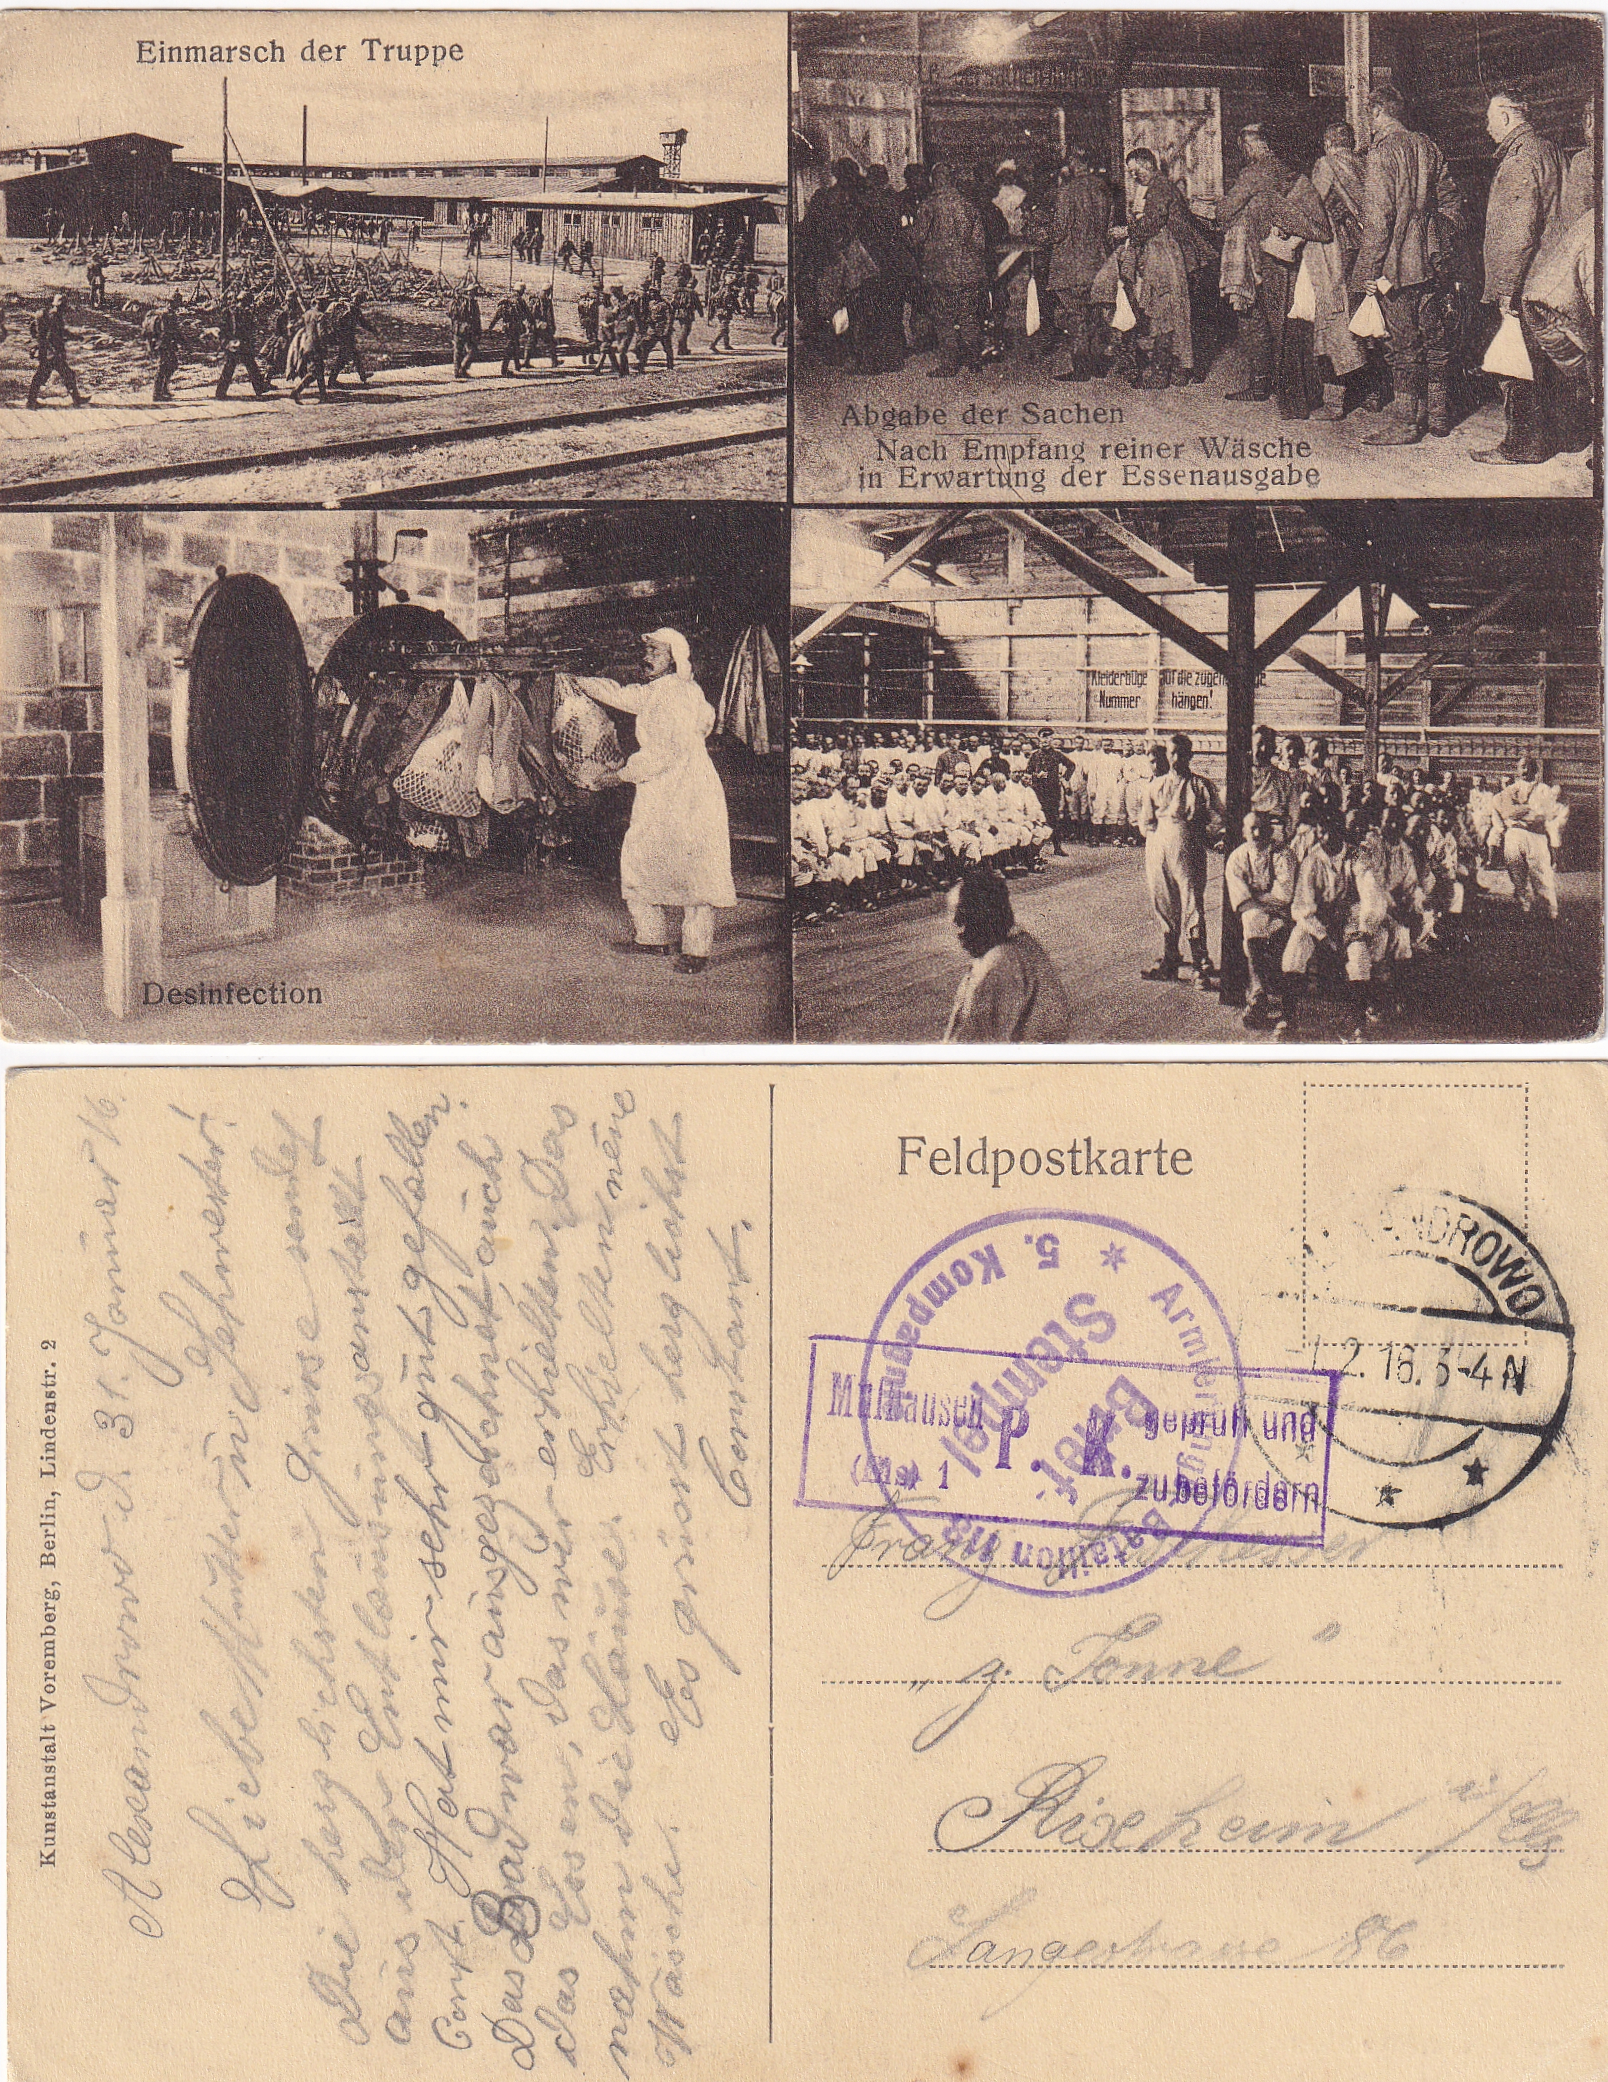 Einmarsch der Truppe
Abgabe der Sachen
Nach Empfang reiner Wäsche
in Erwartung der Essenausgabe
Kleiderbüge auf die
Nummer hängen!
Desinfection
Kunstanstalt Voremberg, Berlin, Lindenstr. 2
Alexandrowo d. 31. Januar 16.
Liebe Mutter u. Schwester!
Die herzlichsten Grüsse sendet
aus der Entlausungsanstalt
Const. Hat mir sehr gut gefallen.
Das Bad war ausgezeichnet, auch
das Essen, das wir erhielten. Das
nahm die Läuse. Erhielten neue
Wäsche. Es grüsst herzlichst
Constant.
Feldpostkarte
ANDROWO
2.16. 3-4 N
* Armierungs-Bataillon
5. Kompagnie
Brief
Stempel
Mülhausen P. K. geprüft und
(Els) 1 zu befördern
Franz
„ z. Tonne "
Rixheim i/Els
Langestrasse 86